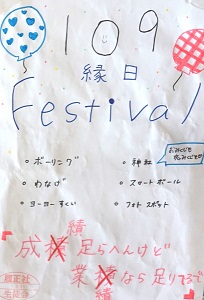 109
縁日
Festival
おみくじも
あるよ
・ボーリング
・神社
・わなげ
・スマートボール
・ヨーヨーすくい
・フォトスポット
績
成 足らへんけど
業 なら足りてるで
績
生徒会